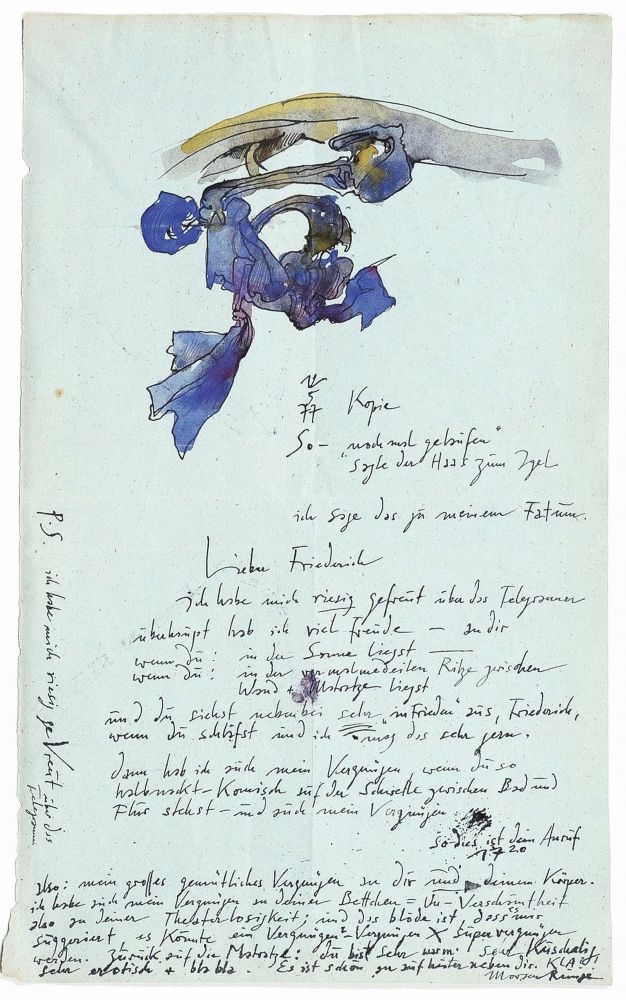 5
77 Kopie
So – "nochmal gelaufen"
sagte der Haas zum Igel
ich sage das zu meinem Fatum.
Lieber Friederich
ich habe mich riesig gefreut über das Telegramm
überhaupt hab ich viel Freude – an dir
wenn du: in der Sonne liegst
wenn du: in der Ritze zwischen
Wand + Matratze liegst
und du siehst nebenbei sehr "in Frieden" aus, Friederich,
wenn du schläfst und ich mag das sehr gern.
dann hab ich auch mein Vergnügen wenn du so
halbnackt-komisch auf der Schwelle zwischen Bad und
Flur stehst – und auch mein Vergnügen
so dies ist dein Anruf
1720
also: mein großes gemütliches Vergnügen an dir und deinem Körper.
ich habe auch mein Vergnügen an deiner Bettchen = Un – Verschämtheit
also an deiner Theaterlosigkeit; und das blöde ist, dass mir
suggeriert es könnte ein Vergnügen² Vergnügen X Supervergnügen
werden. Zurück auf die Matratze: du bist sehr warm! sehr kuschelig
sehr erotisch + blabla. Es ist schön neben dir.
P.S. ich habe mich riesig gefreut über das
Telegramm